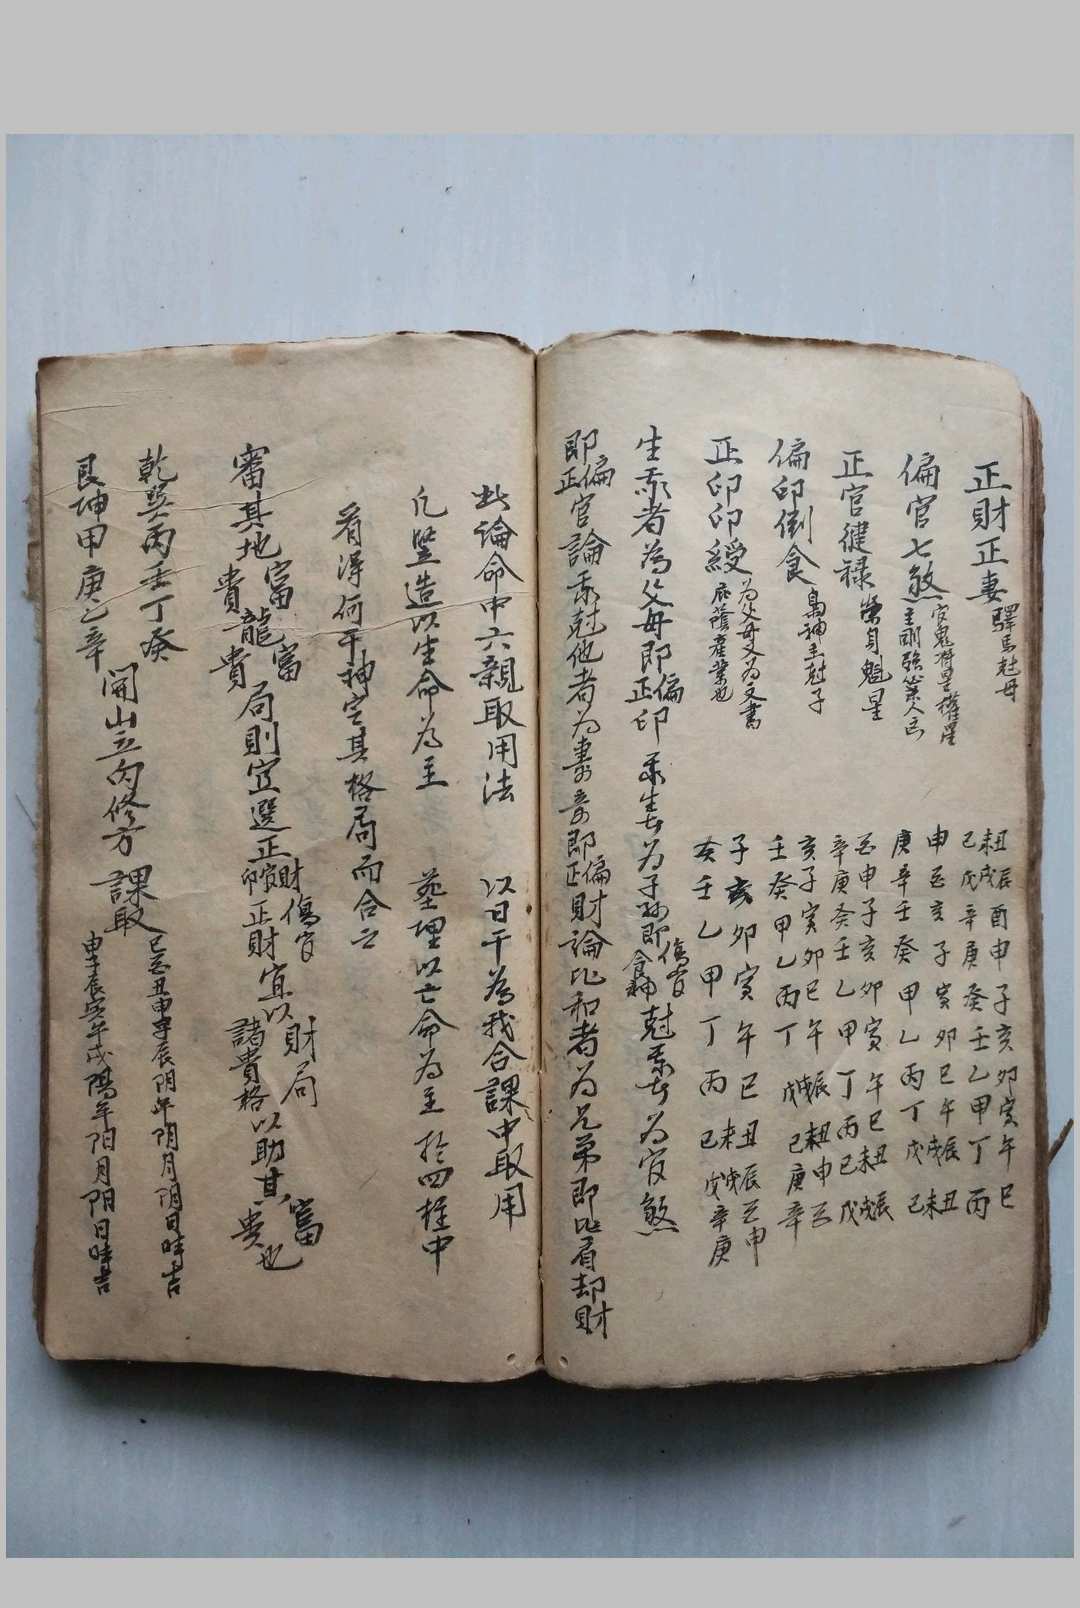 正財正妻 驛馬尅母 己未丑戊戌辰 辛酉 庚申 癸子 壬亥 乙卯 甲寅 丁午 丙巳
偏官七煞 官鬼將星權星 主剛強 申酉亥子寅卯巳午戌辰未丑
庚辛壬癸甲乙丙丁戊己
正官健祿 榮身魁星 酉申子亥卯寅午巳未丑戌辰
辛庚癸壬乙甲丁丙己戊
偏印倒食 梟神主尅子 亥子寅卯巳午戌辰未丑申酉
壬癸甲乙丙丁戊己庚辛
正印印綬 為父母又為文書 庇蔭產業也 子亥卯寅午巳未丑戌辰酉申
癸壬乙甲丁丙己戊辛庚
生我者為父母即偏正印 我生者為子孫即傷官食神 尅我者為官煞
即偏正官論我尅他者為妻妾即偏正財論比和者為兄弟即比肩却財
此論命中六親取用法 以日干為我合課中取用
凡豎造以生命為主 葬埋以亡命為主於四柱中
看得何干神定其格局而合之
審其地富貴龍富貴局則宜選正財官印傷官正財宜以財局諸貴格以助其富貴也
乾巽丙壬丁癸
艮坤甲庚乙辛
開山立向修方 課取 巳酉丑申子辰阴年阴月阴日時吉
申子辰寅午戌陽年阳月阳日時吉